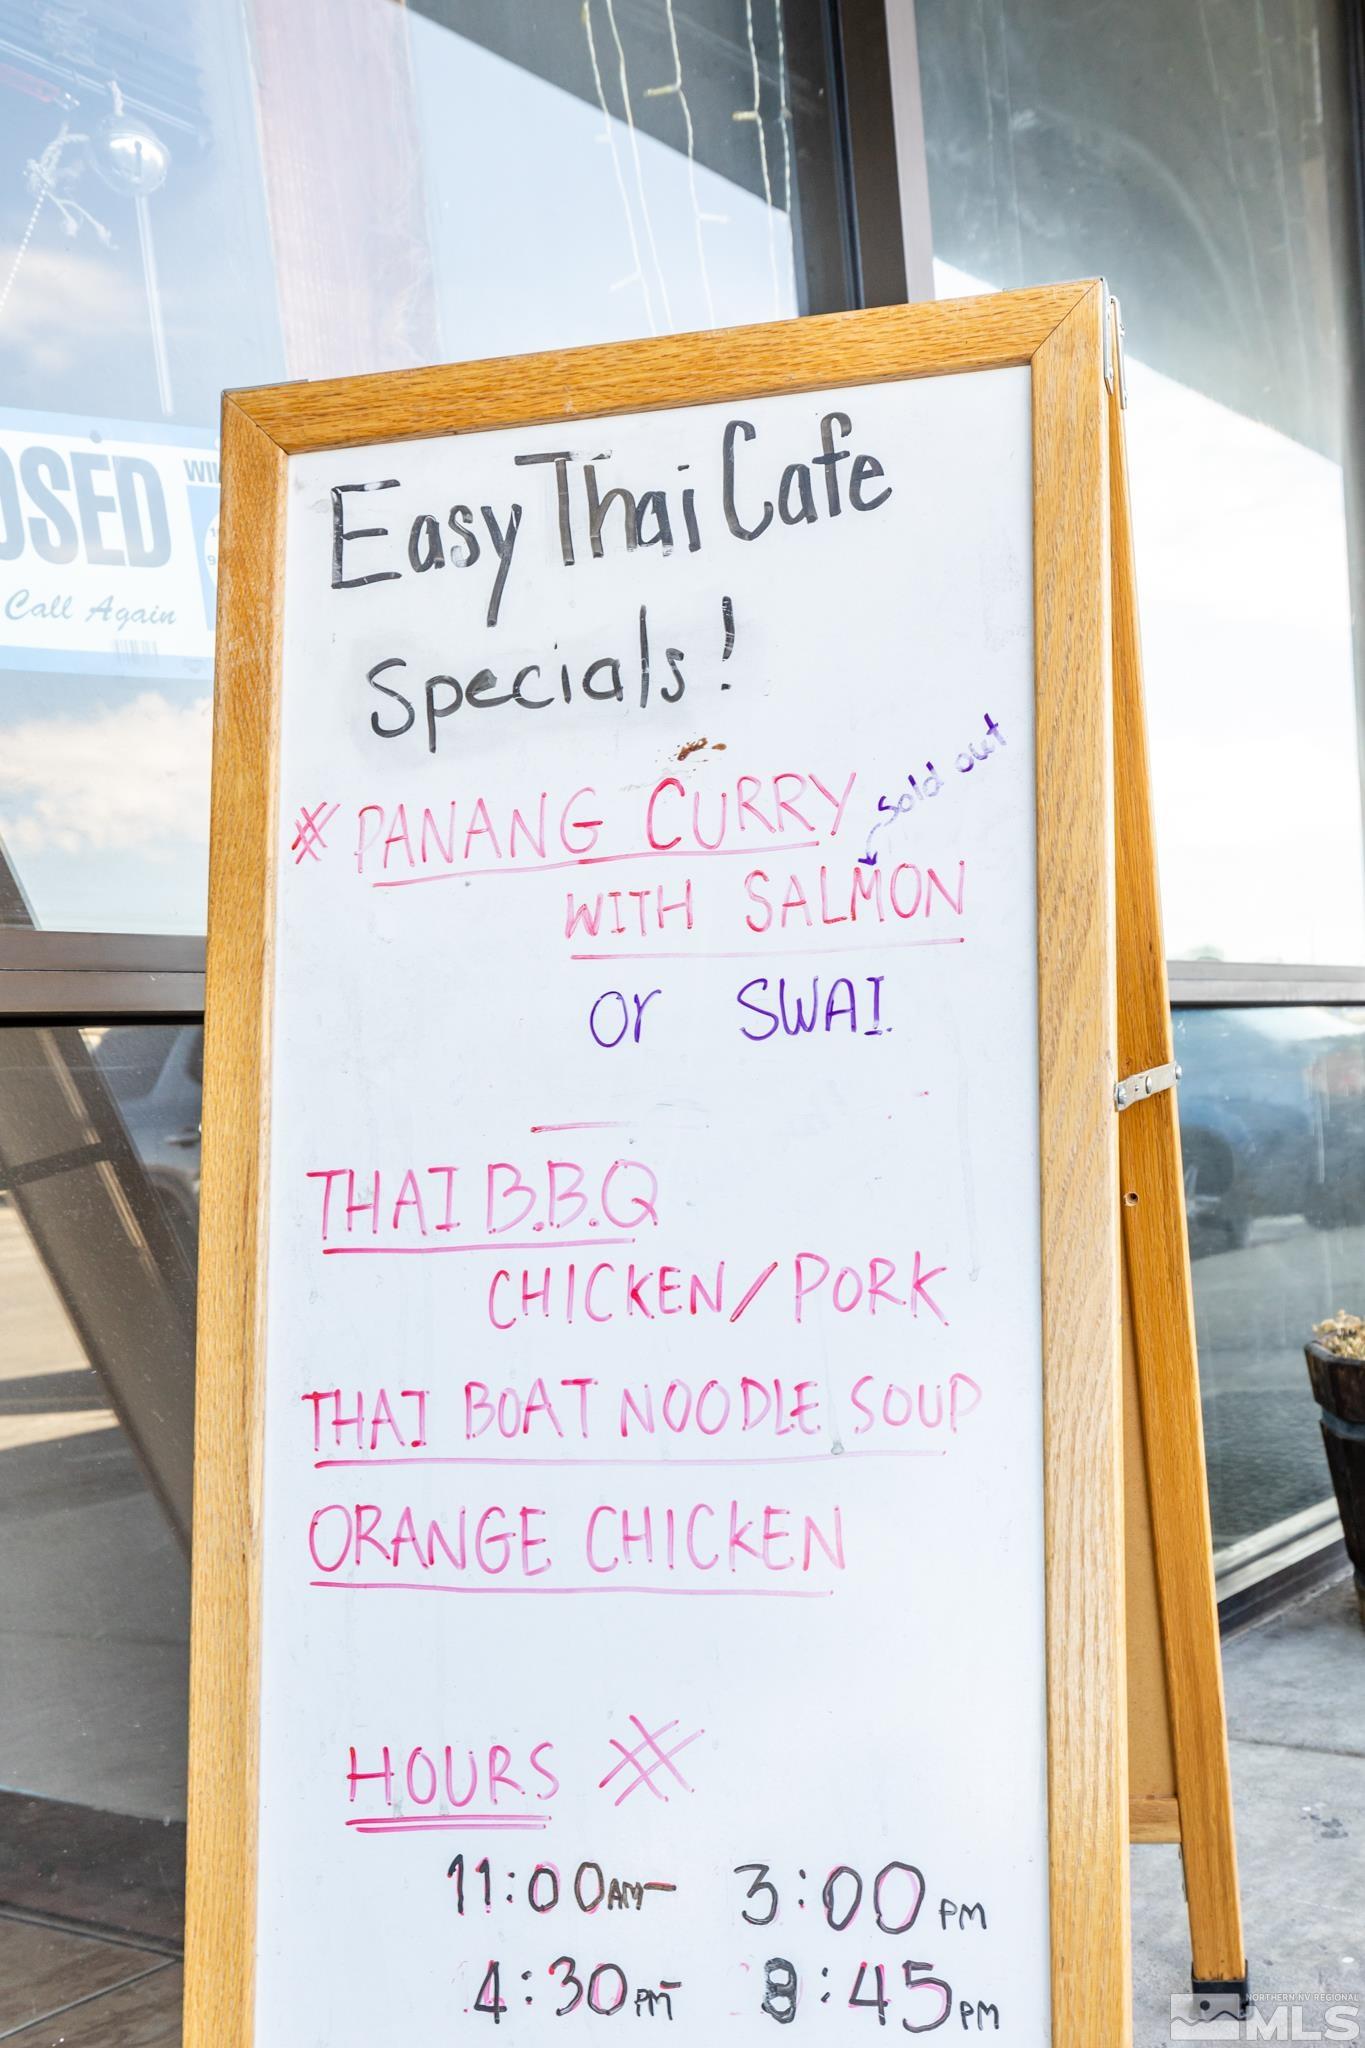 OSED
WIL
Call Again
Easy Thai Cafe
Specials!
# PANANG CURRY
Sold out
WITH SALMON
or SWAI.
THAI B.B.Q
CHICKEN/PORK
THAI BOAT NOODLE SOUP
ORANGE CHICKEN
HOURS #
11:00AM- 3:00PM
4:30PM- 8:45PM
NORTHERN NV REGIONAL
MLS